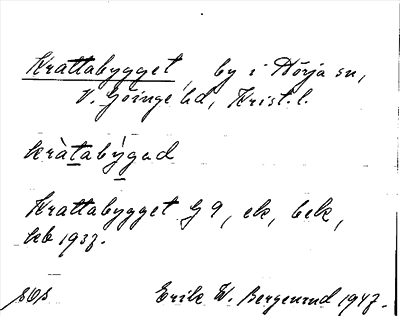 Krattabygget, by i Nörja sn,
V. Göinge hd, Krist. l.
kràtabỳgad
Krattabygget G 9, ek, bek,
kb 1937.
SOS Erik W. Bergenrud 1947.